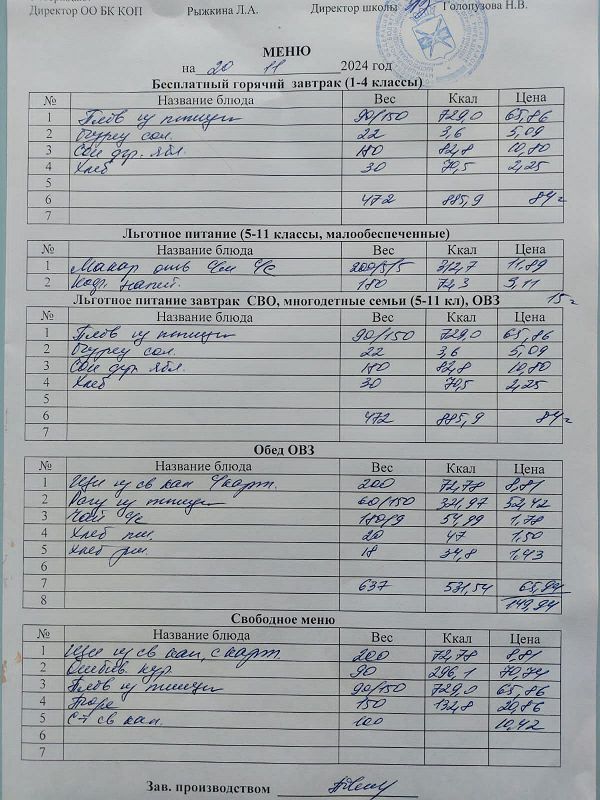 Директор ОО БК КОП Рыжкина Л.А. Директор школы Голопузова Н.В.
МЕНЮ
на 20 11 2024 год
Бесплатный горячий завтрак (1-4 классы)
№ Название блюда Вес Ккал Цена
1 Плов из птицы 90/150 729,0 65,86
2 Огурец сол. 22 3,6 5,09
3 Сок фр. ябл. 180 82,8 10,80
4 Хлеб 30 70,5 2,25
5
6 472 885,9 84
7
Льготное питание (5-11 классы, малообеспеченные)
№ Название блюда Вес Ккал Цена
1 Макар отв 200/5/5 312,7 11,89
2 напит. 180 74,3 3,11
Льготное питание завтрак СВО, многодетные семьи (5-11 кл), ОВЗ 15
№ Название блюда Вес Ккал Цена
1 Плов из птицы 90/150 729,0 65,86
2 Огурец сол. 22 3,6 5,09
3 Сок фр. ябл. 180 82,8 10,80
4 Хлеб 30 70,5 2,25
5
6 472 885,9 84
7
Обед ОВЗ
№ Название блюда Вес Ккал Цена
1 Щи из св кап с/карт. 200 72,78 8,81
2 Рагу из птицы 60/150 321,97 52,42
3 Чай с/с 180/9 54,99 1,78
4 Хлеб пш. 20 47 1,50
5 Хлеб рж. 18 34,8 1,43
6
7 637 531,54 65,94
8 149,94
Свободное меню
№ Название блюда Вес Ккал Цена
1 Щи из св кап, с карт. 200 72,78 8,81
2 кур. 90 296,1 70,74
3 Плов из птицы 90/150 729,0 65,86
4 Пюре 150 132,8 20,86
5 С-т св кап. 100 10,42
6
7
Зав. производством